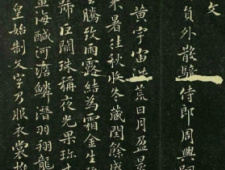 文
員外散騎侍郎周興嗣
黃宇宙洪荒日月盈昃
來暑往秋收冬藏閏餘成
騰致雨露結為霜金生
號巨闕珠稱夜光果珎
海鹹河淡鱗潛羽翔龍
皇始制文字乃服衣裳推